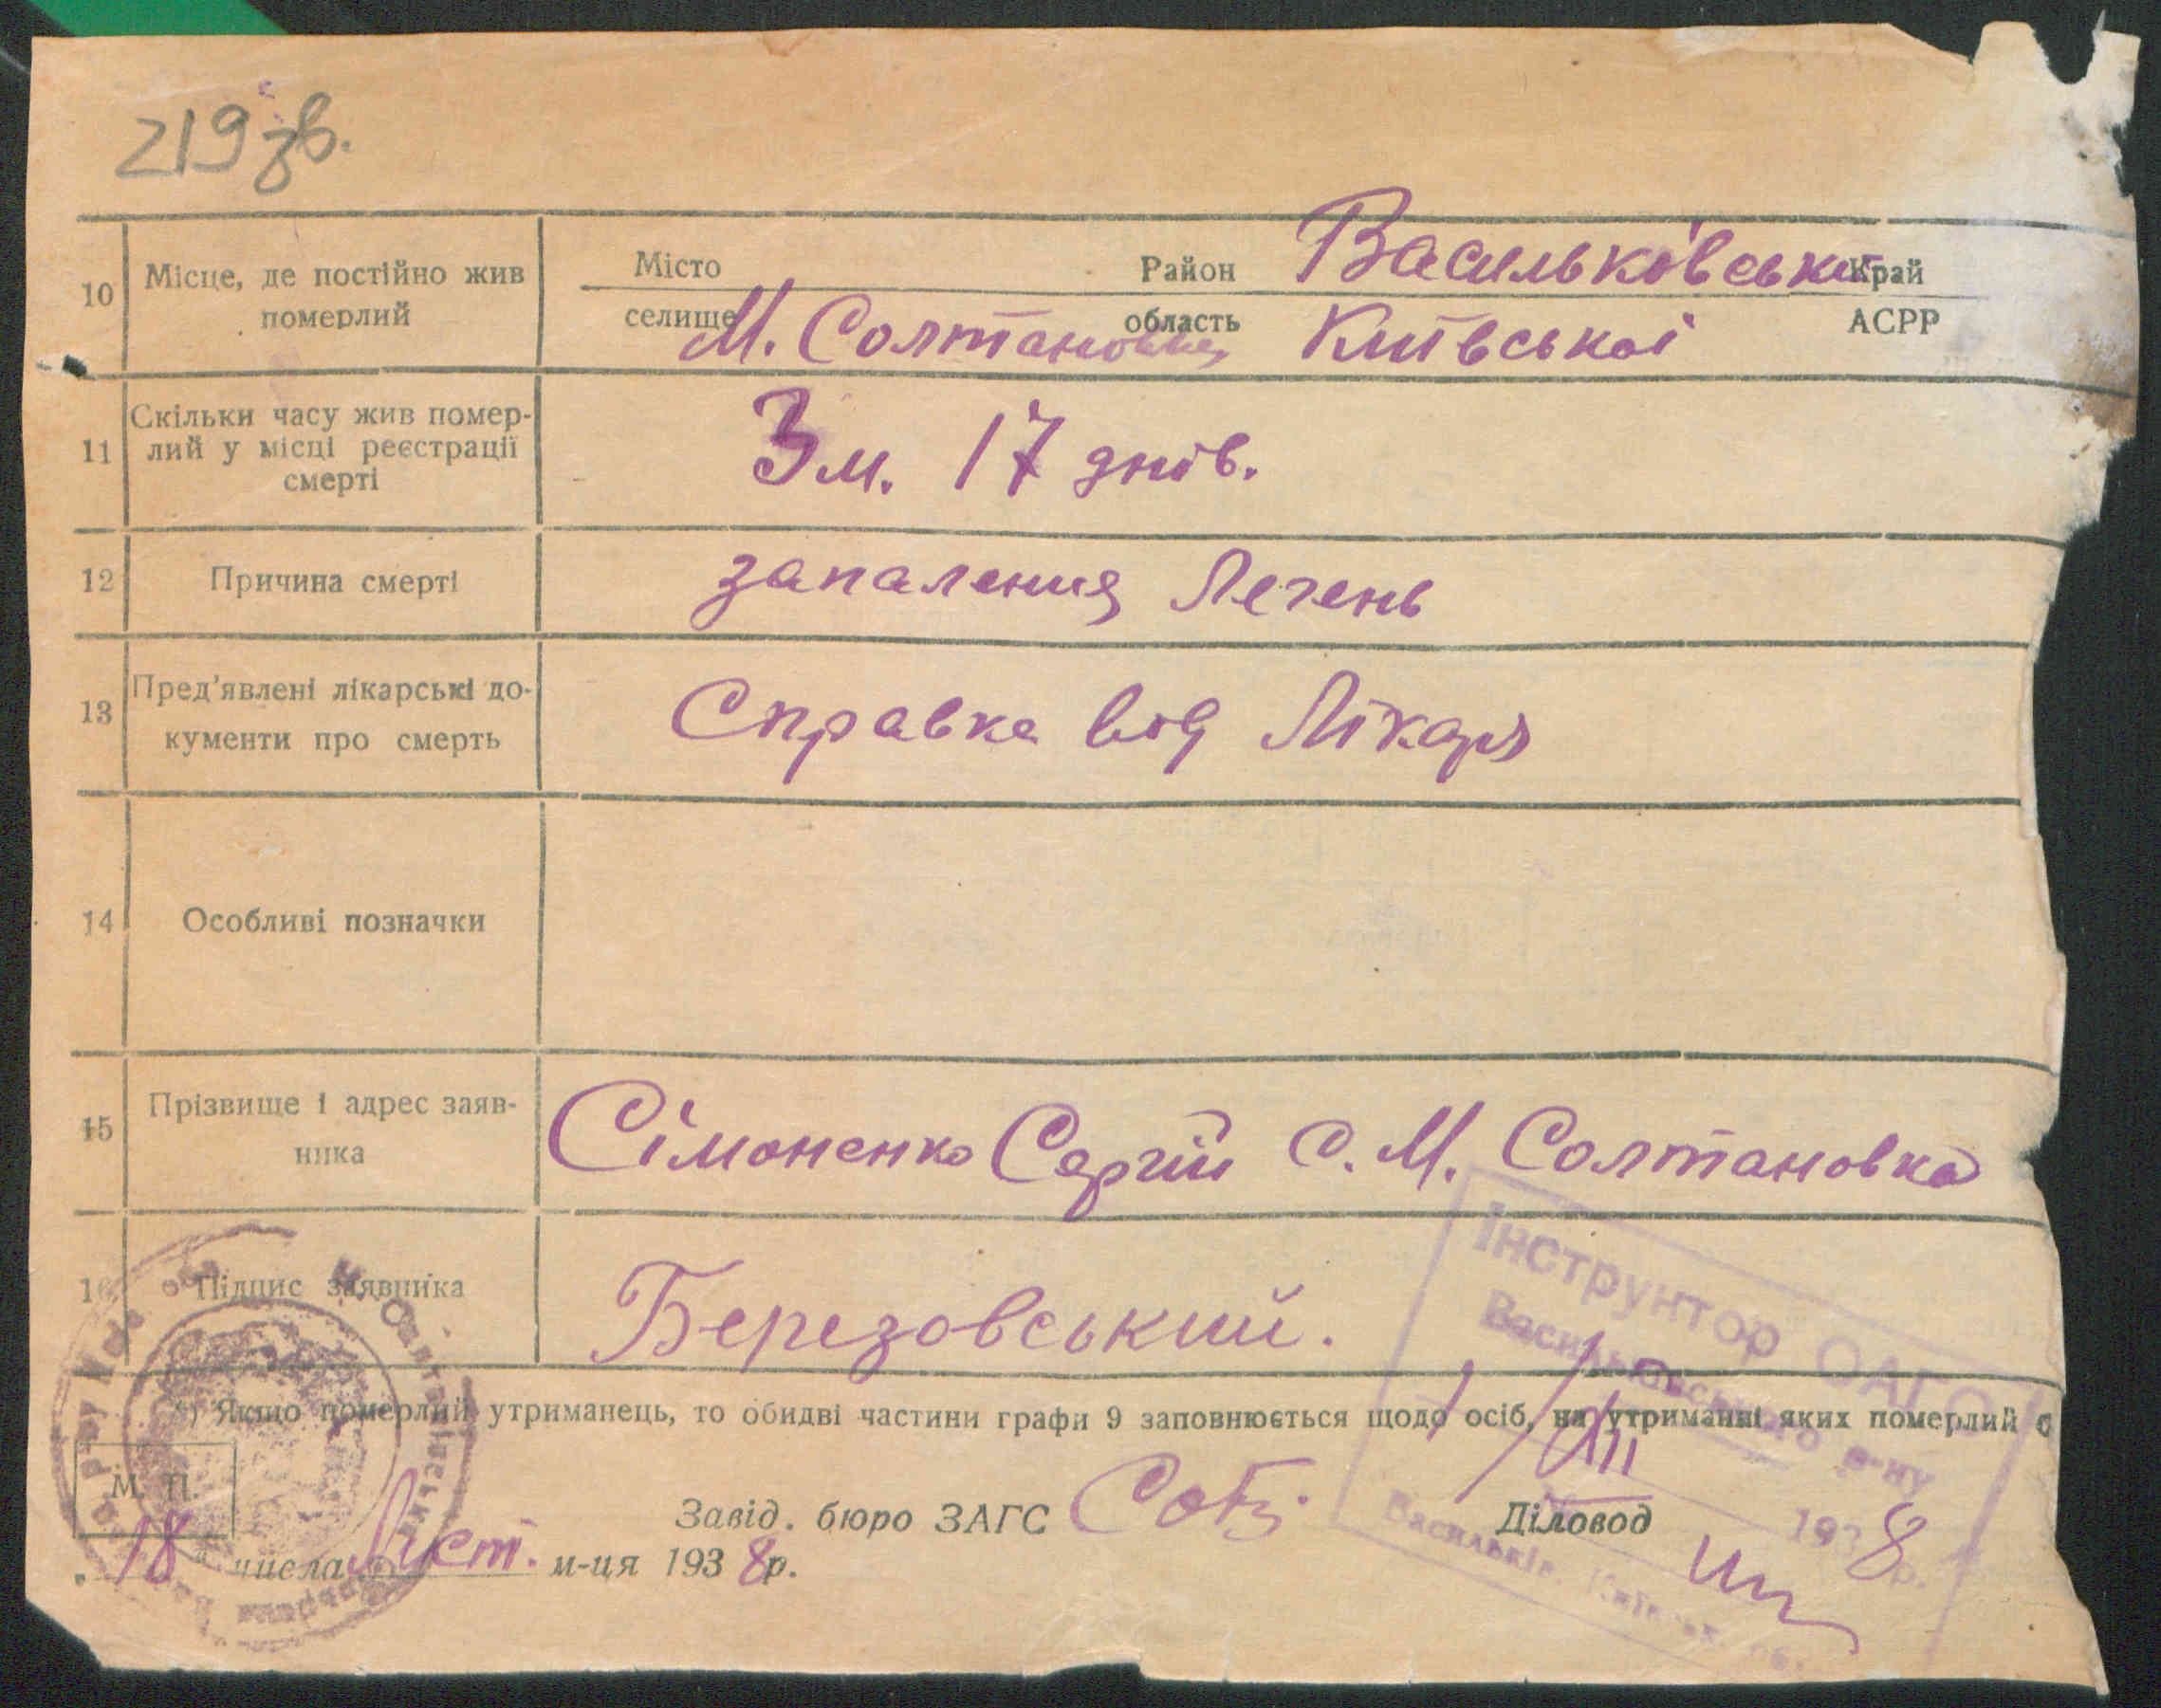 219 зв.
10 Місце, де постійно жив померлий
Місто Район Васильківськи Край
селище М. Солтановка область Київської АСРР
11 Скільки часу жив помер-
лий у місці реєстрації
смерті
3 м. 17 днів.
12 Причина смерті запалення Легень
13 Пред'явлені лікарські до-
кументи про смерть
Справка від Лікаря
14 Особливі позначки
15 Прізвище і адрес заяв-
ника
Сімоненко Сергій с. М. Солтановка
16 Підпис заявника Березовський.
Інструктор ОАГС
Васильківського р-ну
*) Якщо померлий утриманець, то обидві частини графи 9 заповнюється щодо осіб, на утриманні яких померлий
М. П.
Завід. бюро ЗАГС Діловод
1938 р.
Васильків, Київськ. об.
"18" числа Лист. м-ця 1938 р.